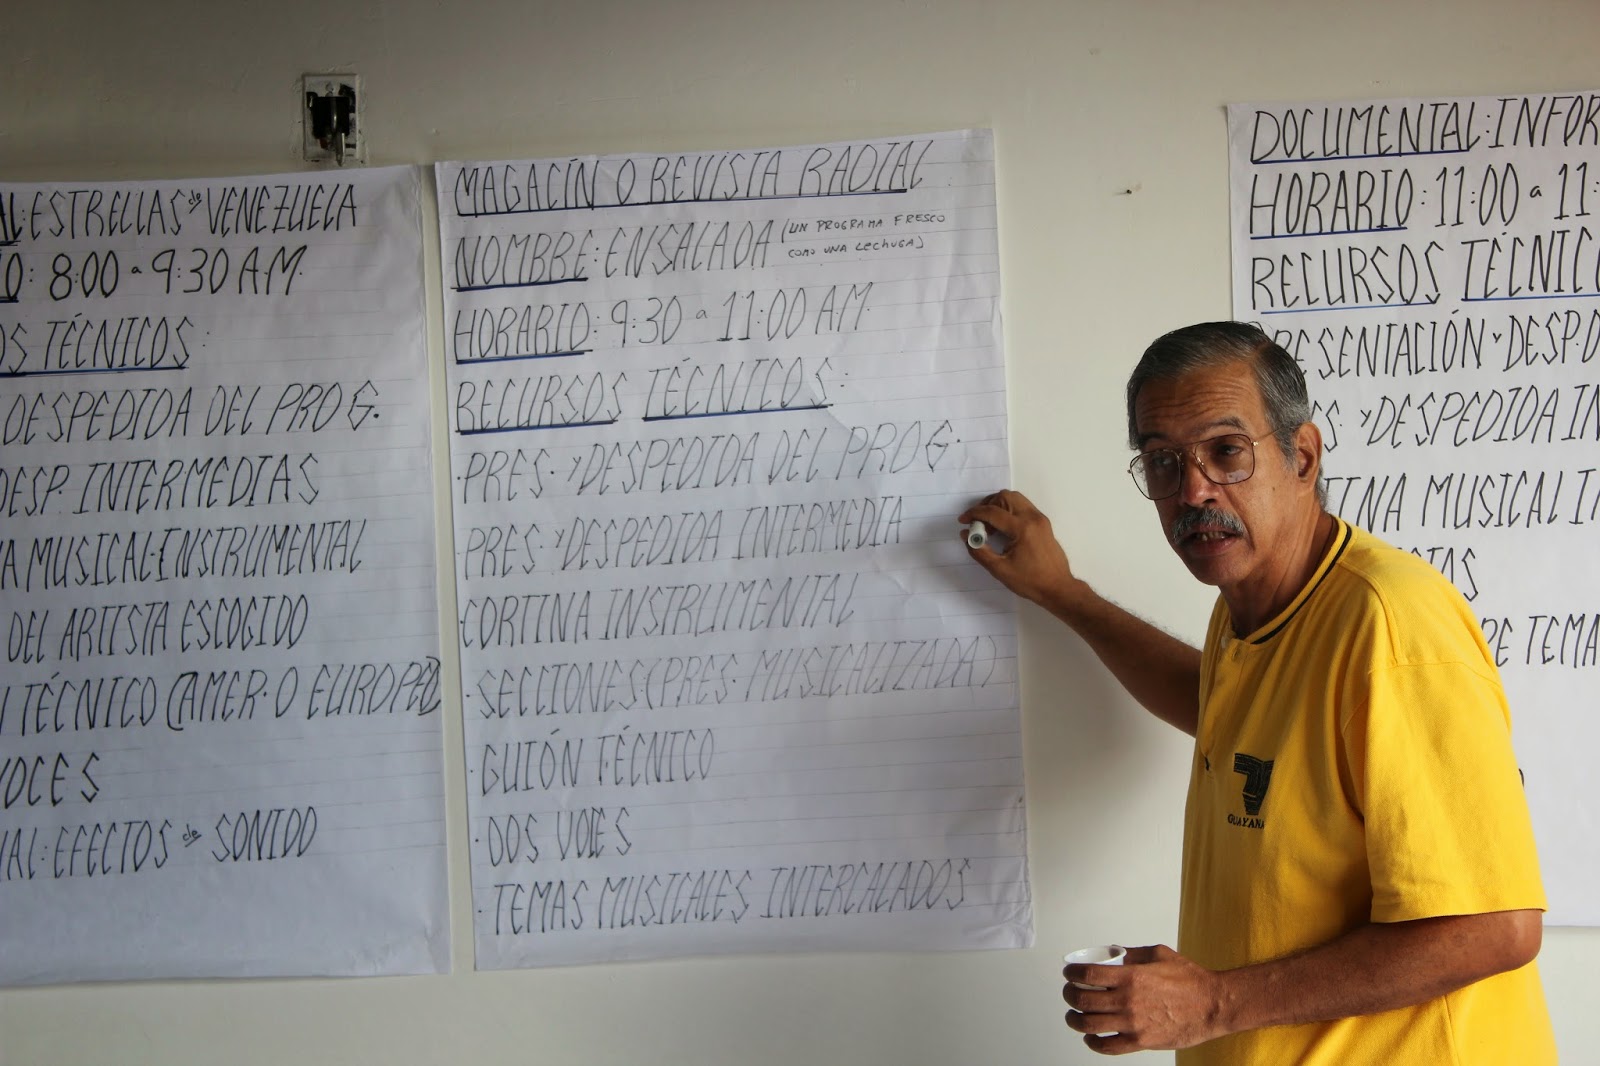 AL: ESTRELLAS de VENEZUELA
O: 8:00 a 9:30 A.M.
OS TÉCNICOS:
DESPEDIDA DEL PROG.
DESP. INTERMEDIAS
A MUSICAL INSTRUMENTAL
DEL ARTISTA ESCOGIDO
N TÉCNICO (AMER. O EUROPEO)
VOCES
NAL: EFECTOS de SONIDO
MAGACÍN O REVISTA RADIAL
NOMBRE: ENSALADA (UN PROGRAMA FRESCO
COMO UNA LECHUGA)
HORARIO: 9:30 a 11:00 A.M.
RECURSOS TÉCNICOS:
· PRES. Y DESPEDIDA DEL PROG.
· PRES. Y DESPEDIDA INTERMEDIA
· CORTINA INSTRUMENTAL
· SECCIONES (PRES. MUSICALIZADA)
· GUIÓN TÉCNICO
· DOS VOCES
· TEMAS MUSICALES INTERCALADOS
DOCUMENTAL: INFOR
HORARIO: 11:00 a 11:
RECURSOS TÉCNICO
PRESENTACIÓN Y DESP. D
ES. Y DESPEDIDA IN
TINA MUSICAL IN
TAS
DE TEMA
GUAYANA